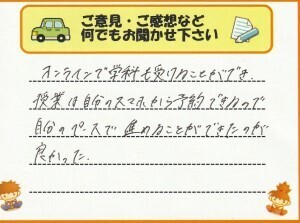 ご意見・ご感想など
何でもお聞かせ下さい
オンラインで学科も受けることができ、
授業は自分のスマホから予約できるので
自分のペースで進めることができたのが
良かった。